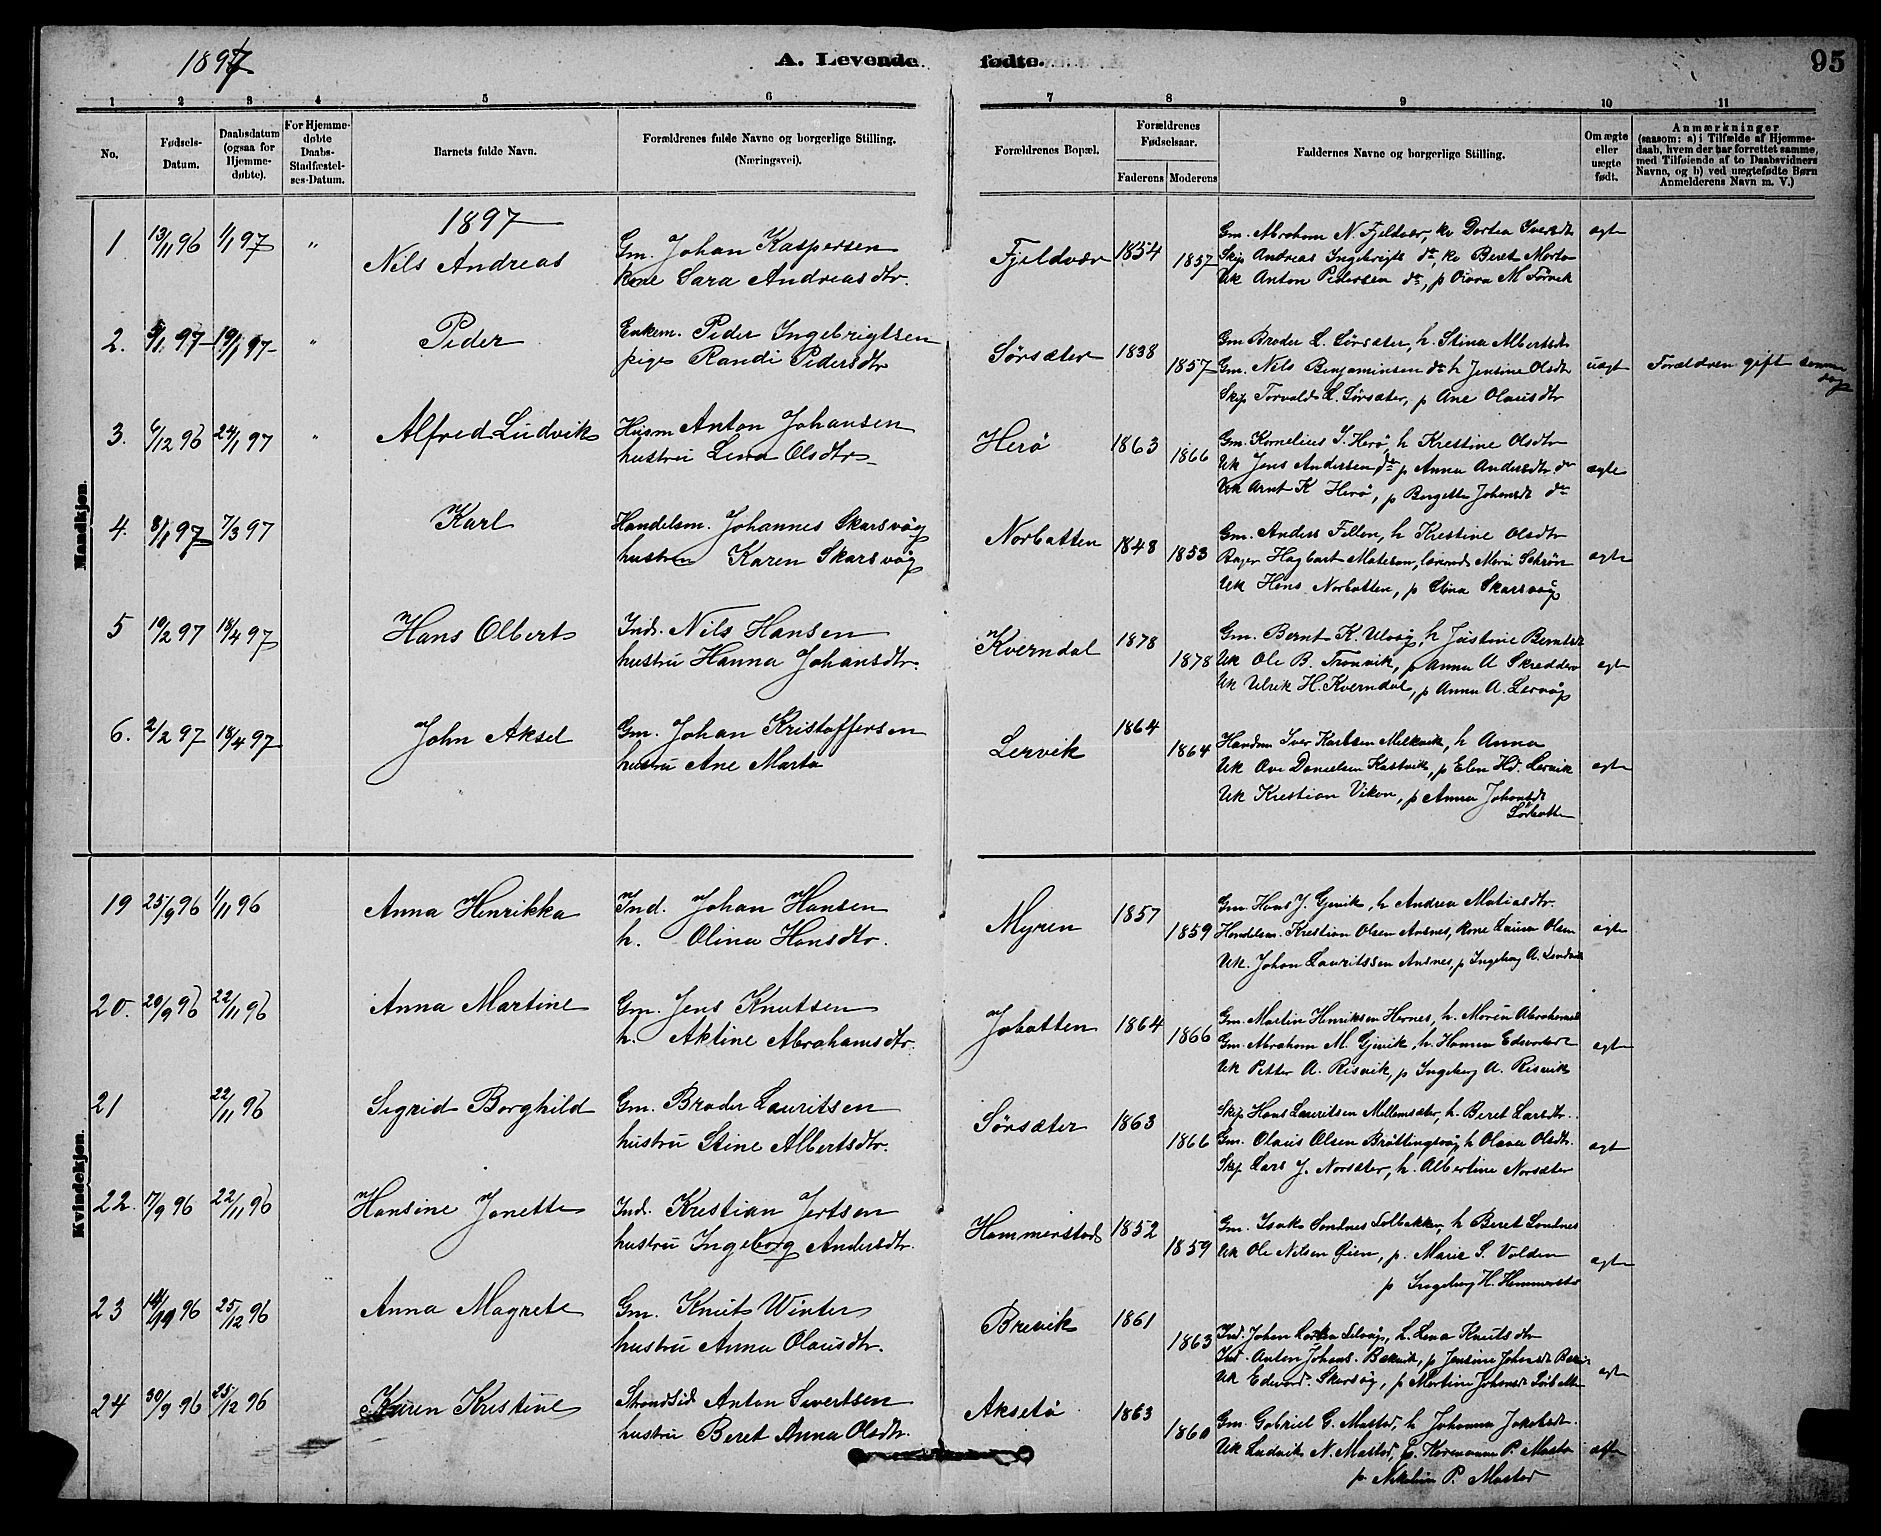 1897
A. Levende fødte.
95
1 2 3 4 5 6 7 8 9 10 11
No.
Fødsels-Datum.
Daabsdatum (ogsaa for Hjemme-døbte).
For Hjemme-døbte Daabs-Stadfæstel-ses-Datum.
Barnets fulde Navn.
Forældrenes fulde Navne og borgerlige Stilling. (Næringsvei).
Forældrenes Bopæl.
Forældrenes Fødselsaar.
Faderens Moderens
Faddernes Navne og borgerlige Stilling.
Om ægte eller uægte født.
Anmærkninger
(saasom: a) i Tilfælde af Hjemme-
daab, hvem der har forrettet samme,
med Tilføiende af to Daabsvidners
Navne, og b) ved uægtefødte Børn
Anmelderens Navn m. V.)
Mandkjøn.
1897
1 13/11 96 1/1 97 " Nils Andreas
Gm. Johan Kaspersen
kone Sara Andreasdtr.
Fjeldvær 1854 1857
Gm. Abraham N. Fjeldvær, ko Dortea Iversdt
Skip Andreas Ingebrigts do, ko Beret Marta
Uk Anton Pedersen do, p M Forvik
ægte
2. 5/1 97 19/1 97 " Peder
Enkem. Peder Ingebrigtsen
pige Randi Pedersdtr
Sørsæter 1838 1857
Gm Broder L. Sørsæter, h. Stina Albertsdt
Gm. Nils Benjaminsen do h Jensine Olsdtr
Skip Torvald L. Sørsæter, p Ane Olausdtr
uægt
Forældren gift samme dag
3. 6/12 96 24/1 97 " Alfred Ludvik
Husm Anton Johansen
hustru Lena Olsdtr
Herø 1863 1866
Gm Kornelius S. Herø, h Krestine Olsdtr
Uk Jens Andersen do p Anna Andersdtr do
Uk Arnt K Herø, p Bergette Johansdt do
ægte
4. 8/1 97 7/3 97 Karl
Handelsm. Johannes Skarsvåg
hustru Karen Skarsvåg
Norbotten 1848 1853
Gm. Anders Fillen, h Krestine Olsdtr
Bager Hagbart Matesen, lærerind Marie Schrøn
Uk Hans Norbotten, p Stina Skarsvåg
ægte
5 19/2 97 18/4 97 Hans Olbert
Ind. Nils Hansen
hustru Hanna Johansdtr.
Kverndal 1878 1878
Gm. Bernt K. Ulvåg, h Justine Berntsdt
Uk Ole B. Tranvik, p Anna A Skreddero
Uk Ulrik H. Kverndal, p Anna A. Lervåg
ægt
6. 2/2 97 18/4 97 John Aksel
Gm. Johan Kristoffersen
hustru Ane Marta
Lervik 1864 1864
Handm Iver Karlsen Melkvik, h Anna
Uk Ove Danielsen Kastvik, p Elen Hd. Lervik
Uk Kristian Viken, p Anna Johansdt
Sørbotten
ægte
Kvindekjøn.
19 25/9 96 1/11 96 Anna Henrikka
Ind. Johan Hansen
h. Olina Hansdtr.
Myren 1857 1859
Gm. Hans J. Gjevik, h Andrea Matiasdtr.
Handelsm. Krestian Olsen Ansnes, kone Laura Olsen
Uk. Johan Lauritssen Ansnes, p Ingeborg A.
ægte
20. 20/9 96 22/11 96 Anna Martine
Gm. Jens Knutsen
h. Aktine Abrahamsdtr.
Jøbotten 1864 1866
Gm. Martin Henriksen Hernes, h. Maria Abrahamsd
Gm. Abraham M. Gjevik, h. Hanna Edvardsdt
Uk Petter A. Risvik, p Ingeborg A. Risvik
ægte
21 22/11 96 Sigrid Borghild
Gm. Broder Lauritsen
hustru Stine Albertsdtr.
Sørsæter 1863 1866
Skip Hans Lauritsen Mellemsæter, h. Beret Larsdtr.
Gm. Olaus Olsen Brattingsvåg h Olava Olsdtr.
Skip Lars J. Norsæter, h. Albertine Norsæter
ægte
22. 17/9 96 22/11 96 Hansine Jonette
Ind. Krestian Jertsen
hustru Ingeborg Andersdtr.
Hammerstad 1852 1859
Gm. Isak Sandnes Solbakken, h Beret Sandnes
Uk Ole Nilsen Øien, p. Marie S. Volden
p Ingeborg H. Hammersta
ægte
23 14/9 96 25/12 96 Anna Magrete
Gm. Knut Winter
hustru Anna Olausdtr.
Brevik 1861 1863
Ind. Johan Selvåg, h. Lena Knutsdtr
Ind. Anton Johans. Bekvik, p Jensine Johansdt
Uk Edvard Skarsvåg, p Martine Johansdt Sørbotten
ægte
24 30/9 96 25/12 96 Karen Kristine
Strandsid Anton Sivertsen
hustru Beret Anna Olsdtr.
Aksetø 1863 1860
Gm. Gabriel G. Mastad, h Johanna Jakobsdt.
Uk Ludvik N. Mastad, p. Hermanna P. Masta
p Nikoline P. Mastad
ægte